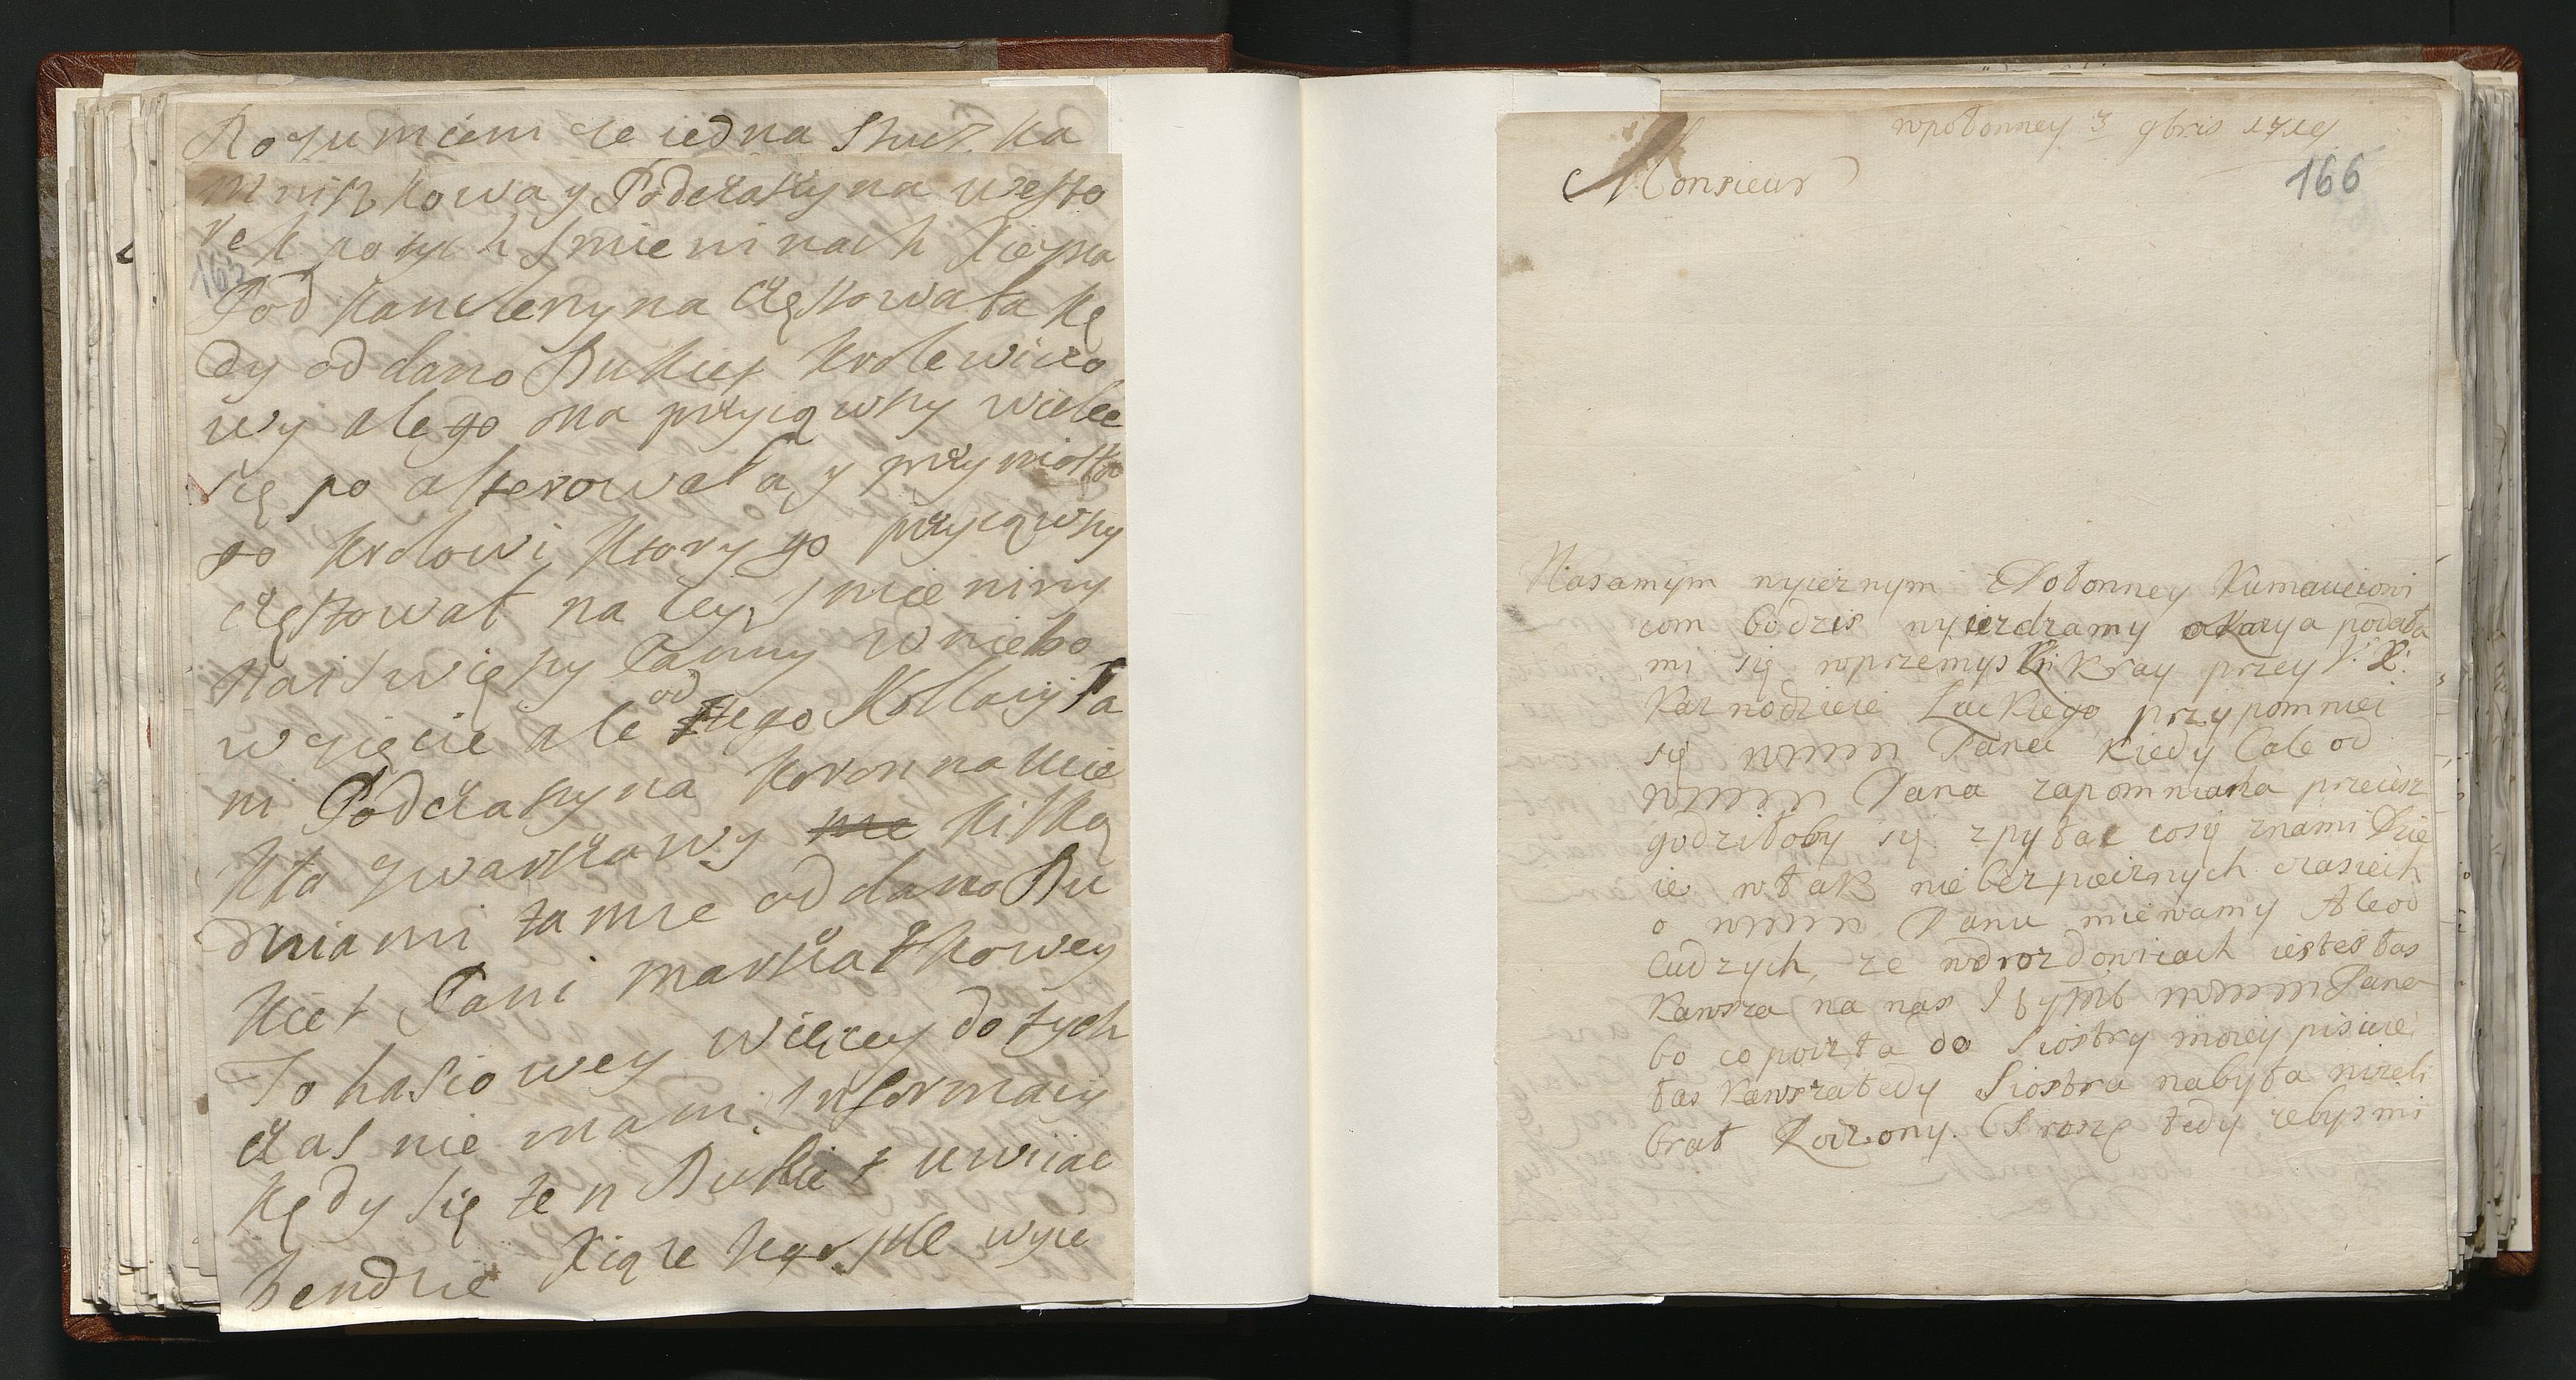 Rozumiem ze iedna Sztuczka
mniszkowa y Podczaszyna westo
rek po tych Jmieninach Xięzna
165
Pod Kanclerzyna częstowała kę
dy oddano Bukiet Krolewiczo
wy ale go ona przyiąwszy wielce
się po alterowała y przyniosła
go Krolowi Ktory go przyiąwszy
częstował na iey Jmieniny
Naiswięszy Panny w niebo
wzięcie ale od tego Kollacyi Pa
ni Podczaszyna Koronna ucie
kła z warszawy kilką
dniami tamże oddano Bu
kiet Pani marszałkowey
To hasiowey więcey do tych
czas nie mam Informacyi
kędy się ten Bukiet uwiiac
bendzie Xiąze wyie
wpołonney 3 9bris 1719
166
Monsieur
Nasamym wyieznym z Połonney Kumaneiowi
com bo dzis wyiezdzamy okazya podała
mi się wprzemyski Kray przey J: X:
Kaznodzieie Luckiego przypomniei
się Panu kiedy Cale od
Pana zapomniana przeiesz
godziłoby się zpytac cosię znami Dzie
ie w tak niebezpiecznych czasiech
o Panu miewamy Ale od
ludzych, ze wdrozdowicach iestes łas
kawsza na nas Pane
bo co poczta do Siostry moiey pisiure
łas kawszatedy Siostra nabyta nizeli
brat Rodzony. Prosze tedy zebys mi